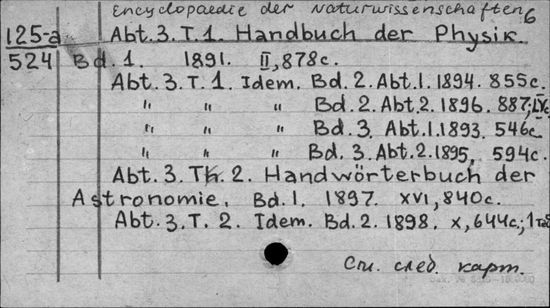 Encyclopaedie der Naturwissenschaften 6
125-a Abt. 3. T. 1. Handbuch der Physik.
524 Bd. 1. 1891. II, 878 с.
Abt. 3. T. 1. Idem. Bd. 2. Abt. 1. 1894. 855 с.
" " " Bd. 2. Abt. 2. 1896. 887, IX с.
" " " Bd. 3. Abt. 1. 1893. 546 с.
" " " Bd. 3. Abt. 2. 1895. 594 с.
Abt. 3. Th. 2. Handwörterbuch der
Astronomie. Bd. 1. 1897. XVI, 840 с.
Abt. 3. T. 2. Idem. Bd. 2. 1898. X, 644 с.; 1 таб
См. след. карт.